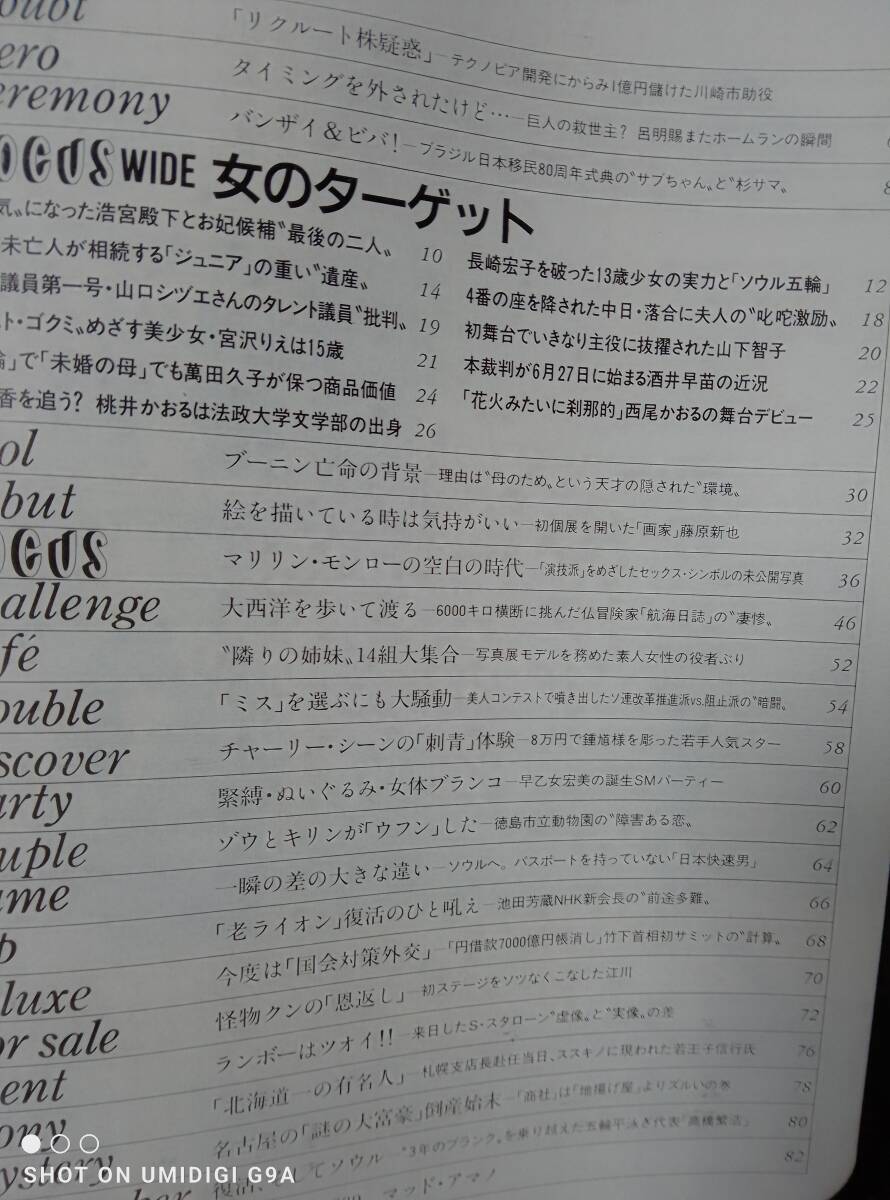 oubt 「リクルート株疑惑」―テクノピア開発にからみ1億円儲けた川崎市助役
ero タイミングを外されたけど…―巨人の救世主? 呂明賜またホームランの瞬間
eremony バンザイ&ビバ!―ブラジル日本移民80周年式典の〝サブちゃん〟と〝杉サマ〟 8
ocus WIDE 女のターゲット
気〟になった浩宮殿下とお妃候補〝最後の二人〟 10
未亡人が相続する「ジュニア」の重い〝遺産〟 14
議員第一号・山口シヅエさんのタレント議員〝批判〟 19
スト・ゴクミ〟めざす美少女・宮沢りえは15歳 21
倫」で「未婚の母」でも萬田久子が保つ商品価値 24
香を追う? 桃井かおるは法政大学文学部の出身 26
長崎宏子を破った13歳少女の実力と「ソウル五輪」 12
4番の座を降された中日・落合に夫人の〝叱咤激励〟 18
初舞台でいきなり主役に抜擢された山下智子 20
本裁判が6月27日に始まる酒井早苗の近況 22
「花火みたいに刹那的」西尾かおるの舞台デビュー 25
ol ブーニン亡命の背景―理由は〝母のため〟という天才の隠された〝環境〟 30
but 絵を描いている時は気持がいい―初個展を開いた「画家」藤原新也 32
ocus マリリン・モンローの空白の時代―「演技派」をめざしたセックス・シンボルの未公開写真 36
allenge 大西洋を歩いて渡る―6000キロ横断に挑んだ仏冒険家「航海日誌」の〝凄惨〟 46
fé 〝隣りの姉妹〟14組大集合―写真展モデルを務めた素人女性の役者ぶり 52
ouble 「ミス」を選ぶにも大騒動―美人コンテストで噴き出したソ連改革推進派vs.阻止派の〝暗闘〟 54
scover チャーリー・シーンの「刺青」体験―8万円で鍾馗様を彫った若手人気スター 58
arty 緊縛・ぬいぐるみ・女体ブランコ―早乙女宏美の誕生SMパーティー 60
uple ゾウとキリンが「ウフン」した―徳島市立動物園の〝障害ある恋〟 62
ame 一瞬の差の大きな違い―ソウルへ。パスポートを持っていない「日本快速男」 64
p 「老ライオン」復活のひと吼え―池田芳蔵NHK新会長の〝前途多難〟 66
luxe 今度は「国会対策外交」―「円借款7000億円帳消し」竹下首相初サミットの〝計算〟 68
or sale 怪物クンの「恩返し」―初ステージをソツなくこなした江川 70
ent ランボーはツオイ!!―来日したS・スタローン〝虚像〟と〝実像〟の差 72
ony 「北海道一の有名人」―札幌支店長赴任当日、ススキノに現われた若王子信行氏 76
ystery 名古屋の「謎の大富豪」倒産始末―「商社」は「地揚げ屋」よりズルいの巻 78
ber 復活、そしてソウル―〝3年のブランク〟を乗り越えた五輪平泳ぎ代表「高橋繁浩」 80
マッド・アマノ 82
SHOT ON UMIDIGI G9A